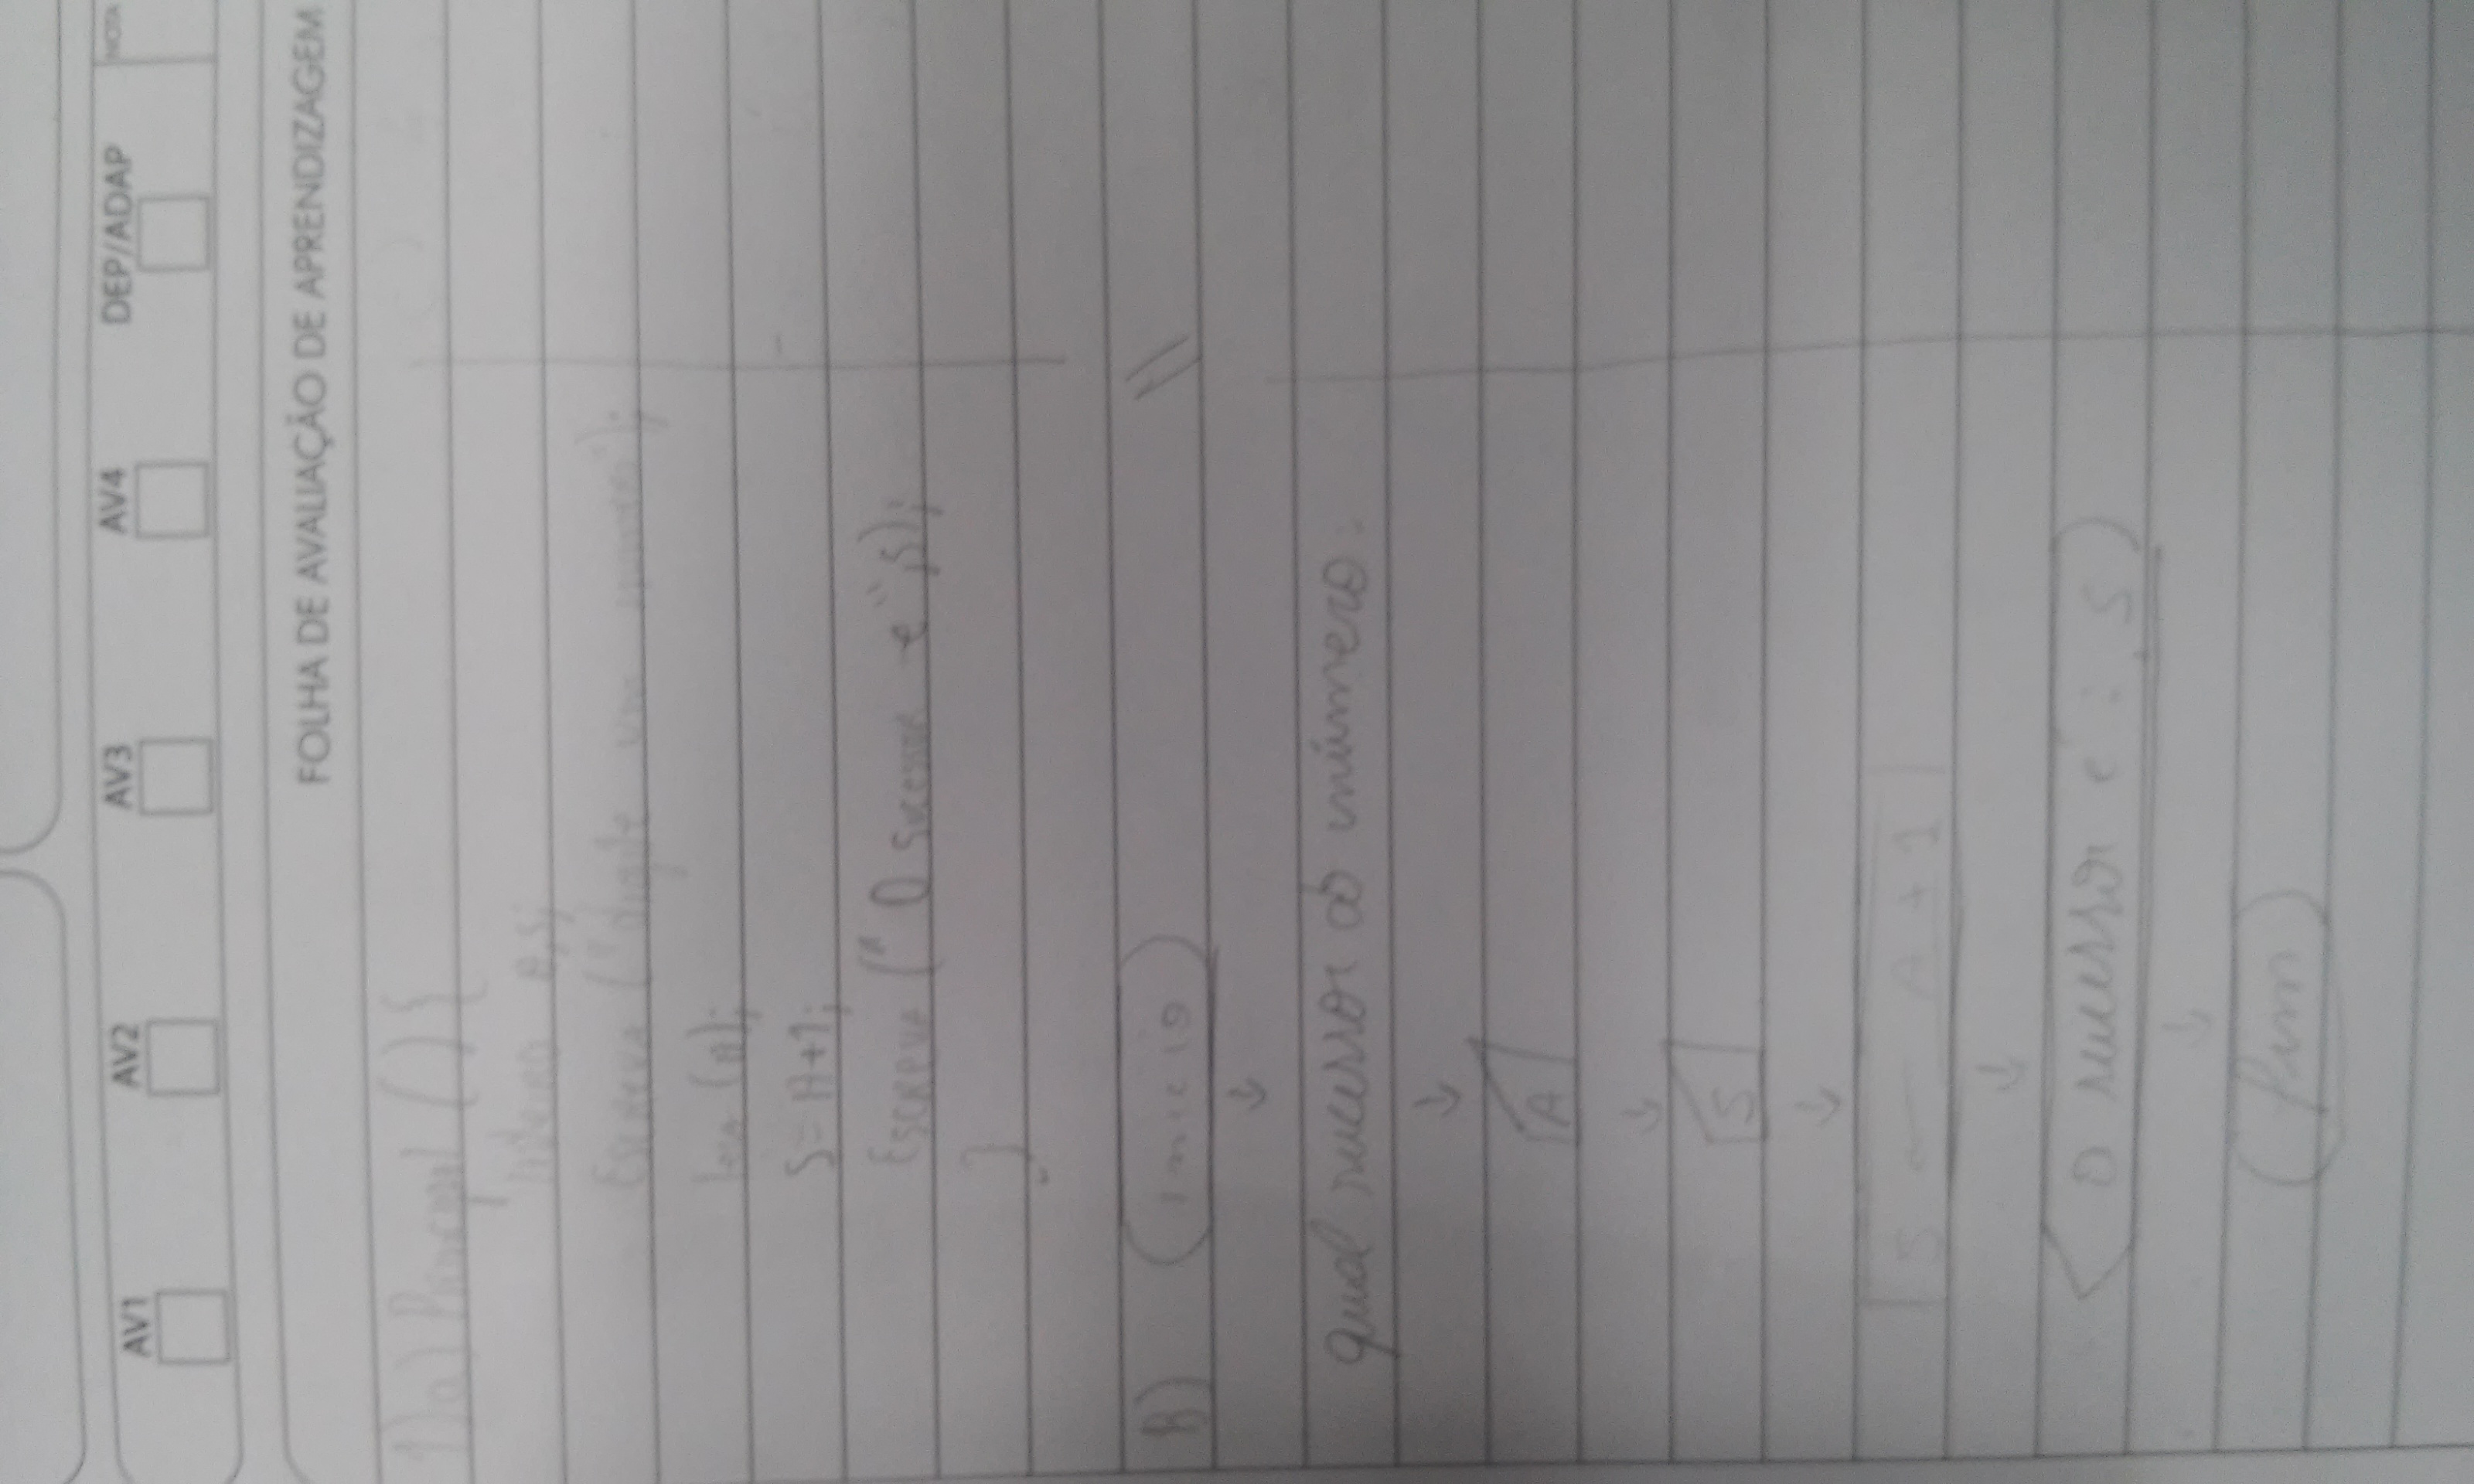 NOTA
AV1 AV2 AV3 AV4 DEP/ADAP
FOLHA DE AVALIAÇÃO DE APRENDIZAGEM
1) a) Principal () {
inteiro A,S;
Escreva ("digite um numero");
leia (A);
S=A+1;
Escreva (" O sucessor e", S);
}
B) (inicio)
↓
qual sucessor do número:
↓
A
↓
S
↓
S ← A + 1
↓
O sucessor e : S
↓
(fim)